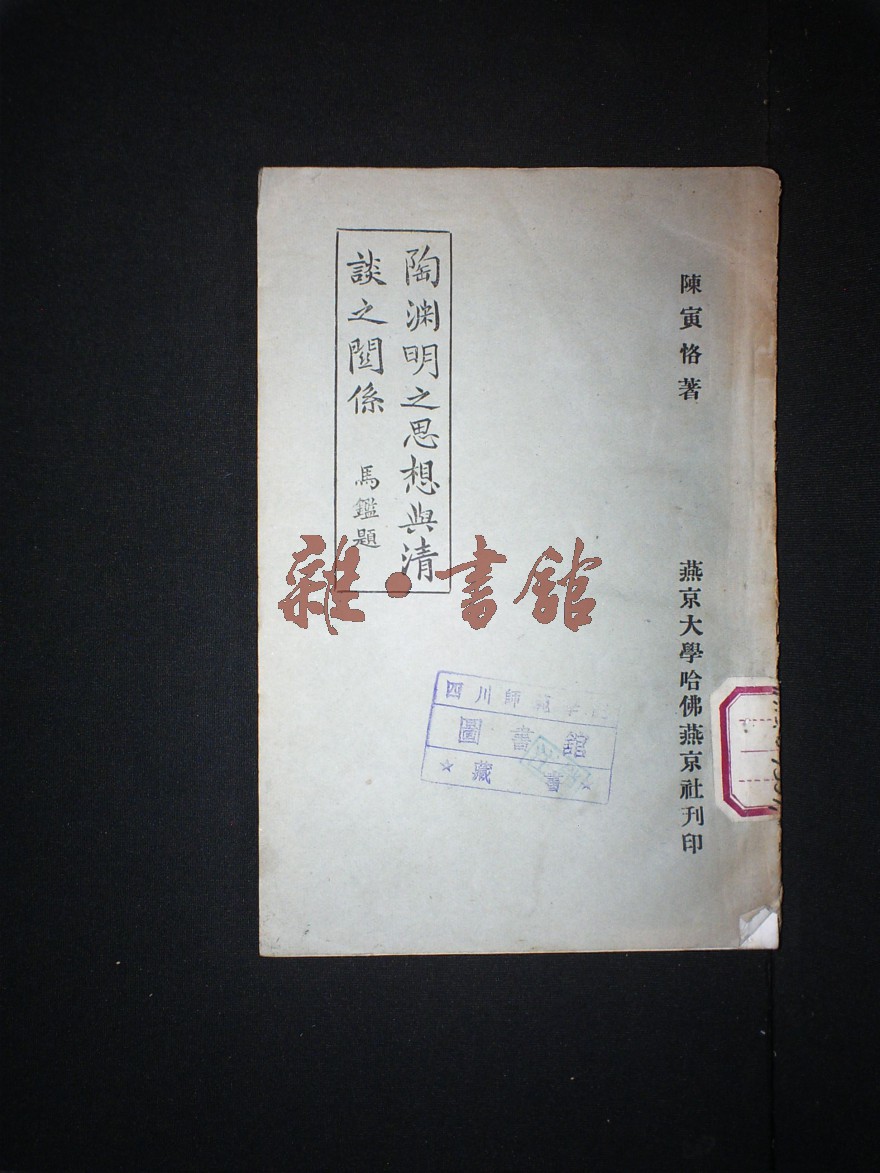 陳寅恪著
燕京大學哈佛燕京社刊印
陶渊明之思想與清
談之關係
馬鑑題
雜·書館
四川師範學院
圖書館
★藏書★